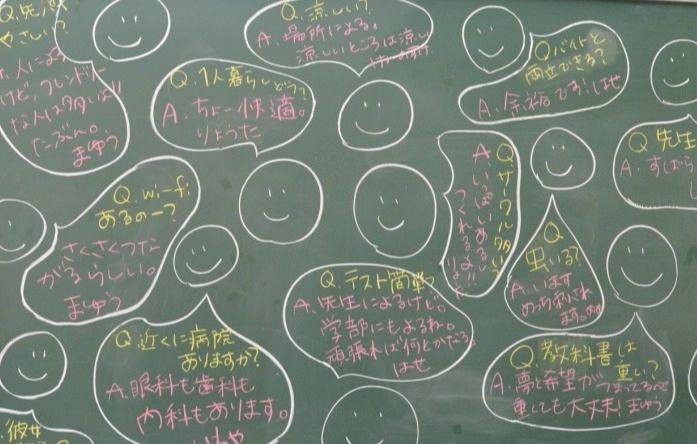 Q.先
やさしい?
A.人による
けど、フレンドリー
な人は多いよ!!
たぶん。
まゆう
Q.涼しい?
A.場所による。
涼しいところは涼しい
Q.バイトと
両立できる?
A.余裕です。はせ
Q.1人暮らしどう??
A.ちょー快適。
りょうた
Q.先生
A.すばら
Qサークル多い?
Aいっぱいあるし
つくれるよ!!
Q.wi-fi
あるのー?
さくさくつな
がるらしい。
まゆう
Q
虫いる?
A.います
Q.テスト簡単?
A.先生によるけど。
学部にもよるね。
頑張れば何とかなる。
はせ
Q.近くに病院
ありますか?
A.眼科も歯科も
内科もあります。
Q.教科書は
重い?
A.夢と希望がつまってるので
重くても大丈夫!まゆう
彼女